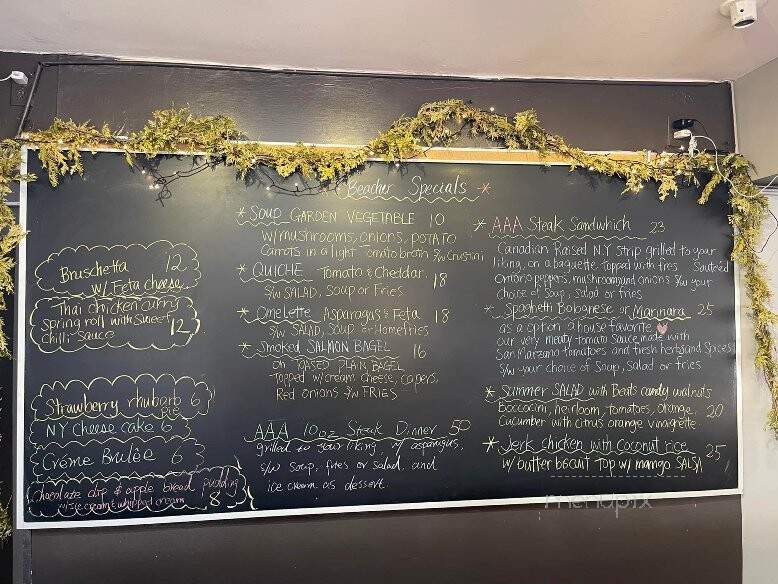 Beacher Specials
Bruschetta 12
w/ Feta cheese
Thai chicken curry
spring roll with sweet
chilli sauce 12
Strawberry rhubarb 6
pie
NY cheese cake 6
Créme Brulèe 6
chocolate chip & apple bread pudding
ice cream & whipped cream 8
* SOUP GARDEN VEGETABLE 10
w/mushrooms, onions, potato
Carrots in a light Tomato broth w/ crustini
* QUICHE Tomato & Cheddar
s/w SALAD, SOUP or Fries 18
* Omelette Asparagus & Feta 18
s/w SALAD, SOUP or Homefries
* Smoked SALMON BAGEL 16
on TOASED PLAIN BAGEL
Topped w/ cream cheese, capers,
Red onions s/w FRIES
AAA 10oz Steak Dinner 50
grilled to your liking, w/ asparagus,
s/w soup, fries or salad, and
ice cream as dessert.
* AAA Steak Sandwhich 23
Canadian Raised N.Y strip grilled to your
liking, on a baguette Topped with fres Sauteed
onions peppers, mushrooms and onions s/w your
choice of soup, salad or fries
* Spaghetti Bolognese or Marinara 25
as a option a house favorite
our very meaty tomato sauce made with
San Marzano tomatoes and fresh herbs and spices
s/w your choice of soup, Salad or fries
* Summer SALAD with Beats candy walnuts
Boccocini, heirloom, tomatoes, orange, 20
Cucumber with citrus orange vinaigrette
* Jerk chicken with Coconut rice 25
w/ butter biscuit Top w/ mango SALSA
menupix